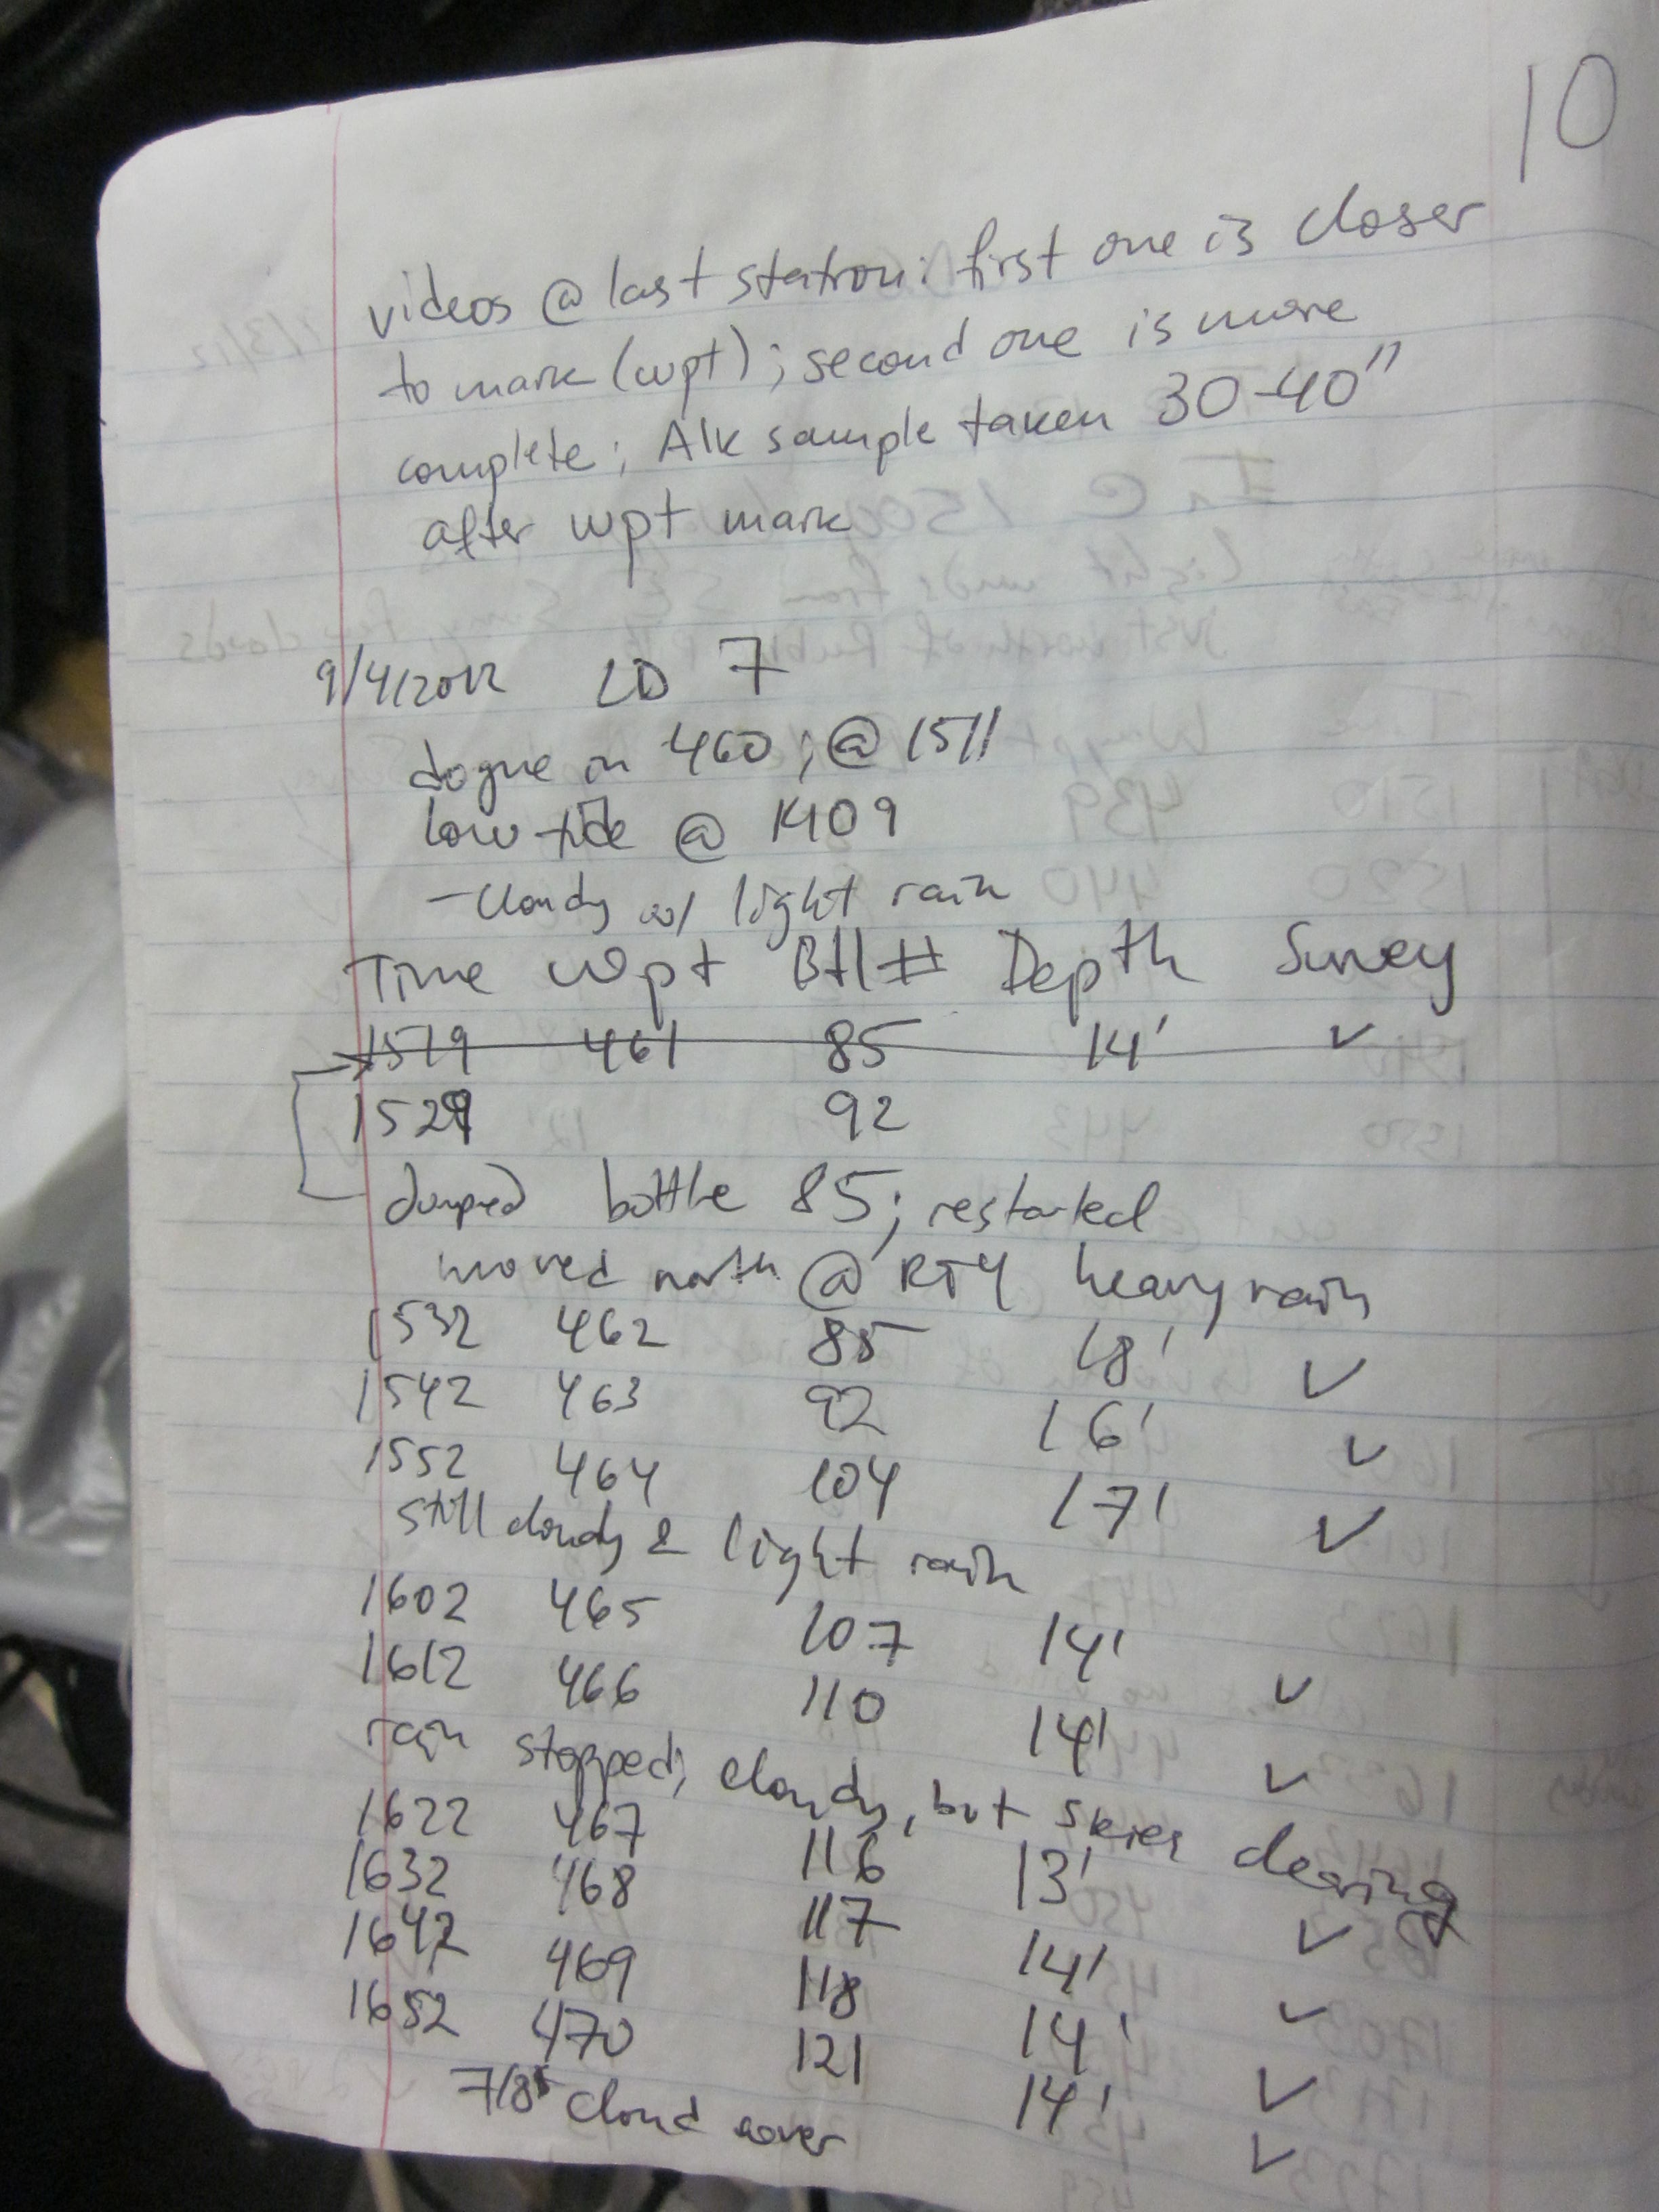 10
videos @ last station: first one is closer
to mark (wpt); second one is more
complete; Alk sample taken 30-40"
after wpt mark
9/4/2012 LD 7
dogue in 460; @ 1511
low tide @ 1409
- cloudy w/ light rain
Time wpt Btl# Depth Survey
1519 461 85 14' ✓
1529 92
dumped bottle 85; restarted
moved north @ RT4 heavy rain
1532 462 85 18' ✓
1542 463 92 16' ✓
1552 464 104 17' ✓
still cloudy & light rain
1602 465 107 14' ✓
1612 466 110 14' ✓
rain stopped; cloudy, but skies clearing
1622 467 116 13' ✓
1632 468 117 14' ✓
1642 469 118 14' ✓
1652 470 121 14' ✓
7/8 cloud cover